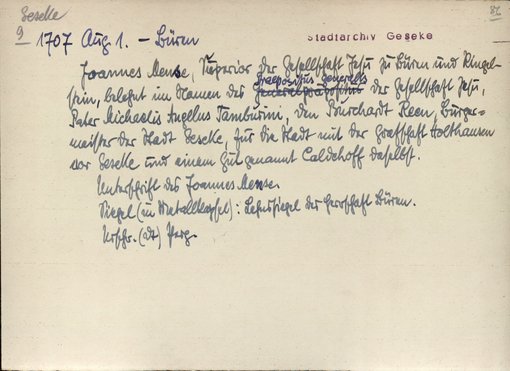 Geseke
9
82
Stadtarchiv Geseke
1707 Aug 1. - Büren
Joannes Mense, Superior der Gesellschaft Jesu zu Büren und Ringel-
stein, belehnt im Namen des Praepositus Generalis der Gesellschaft Jesu,
Pater Michaelis Angelus Tamburini, den Burchardt Keen, Bürger-
meister der Stadt Geseke, für die Stadt mit der Grafschaft Holthausen
vor Geseke und einem Gut genannt Caldehoff daselbst.
Unterschrift des Joannes Mense.
Siegel (in Metallkapsel): Lehnssiegel der Herrschaft Büren.
Urschr. (dt) Perg.